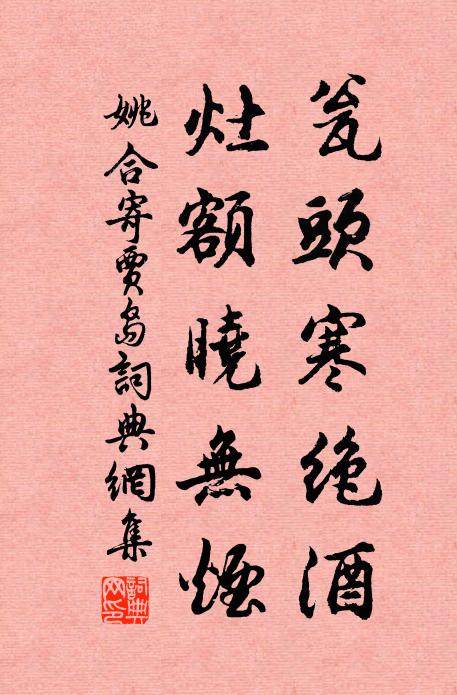 瓮頭寒绝酒
灶額曉無煙
姚合寄賈島詞典網集
詞典网印